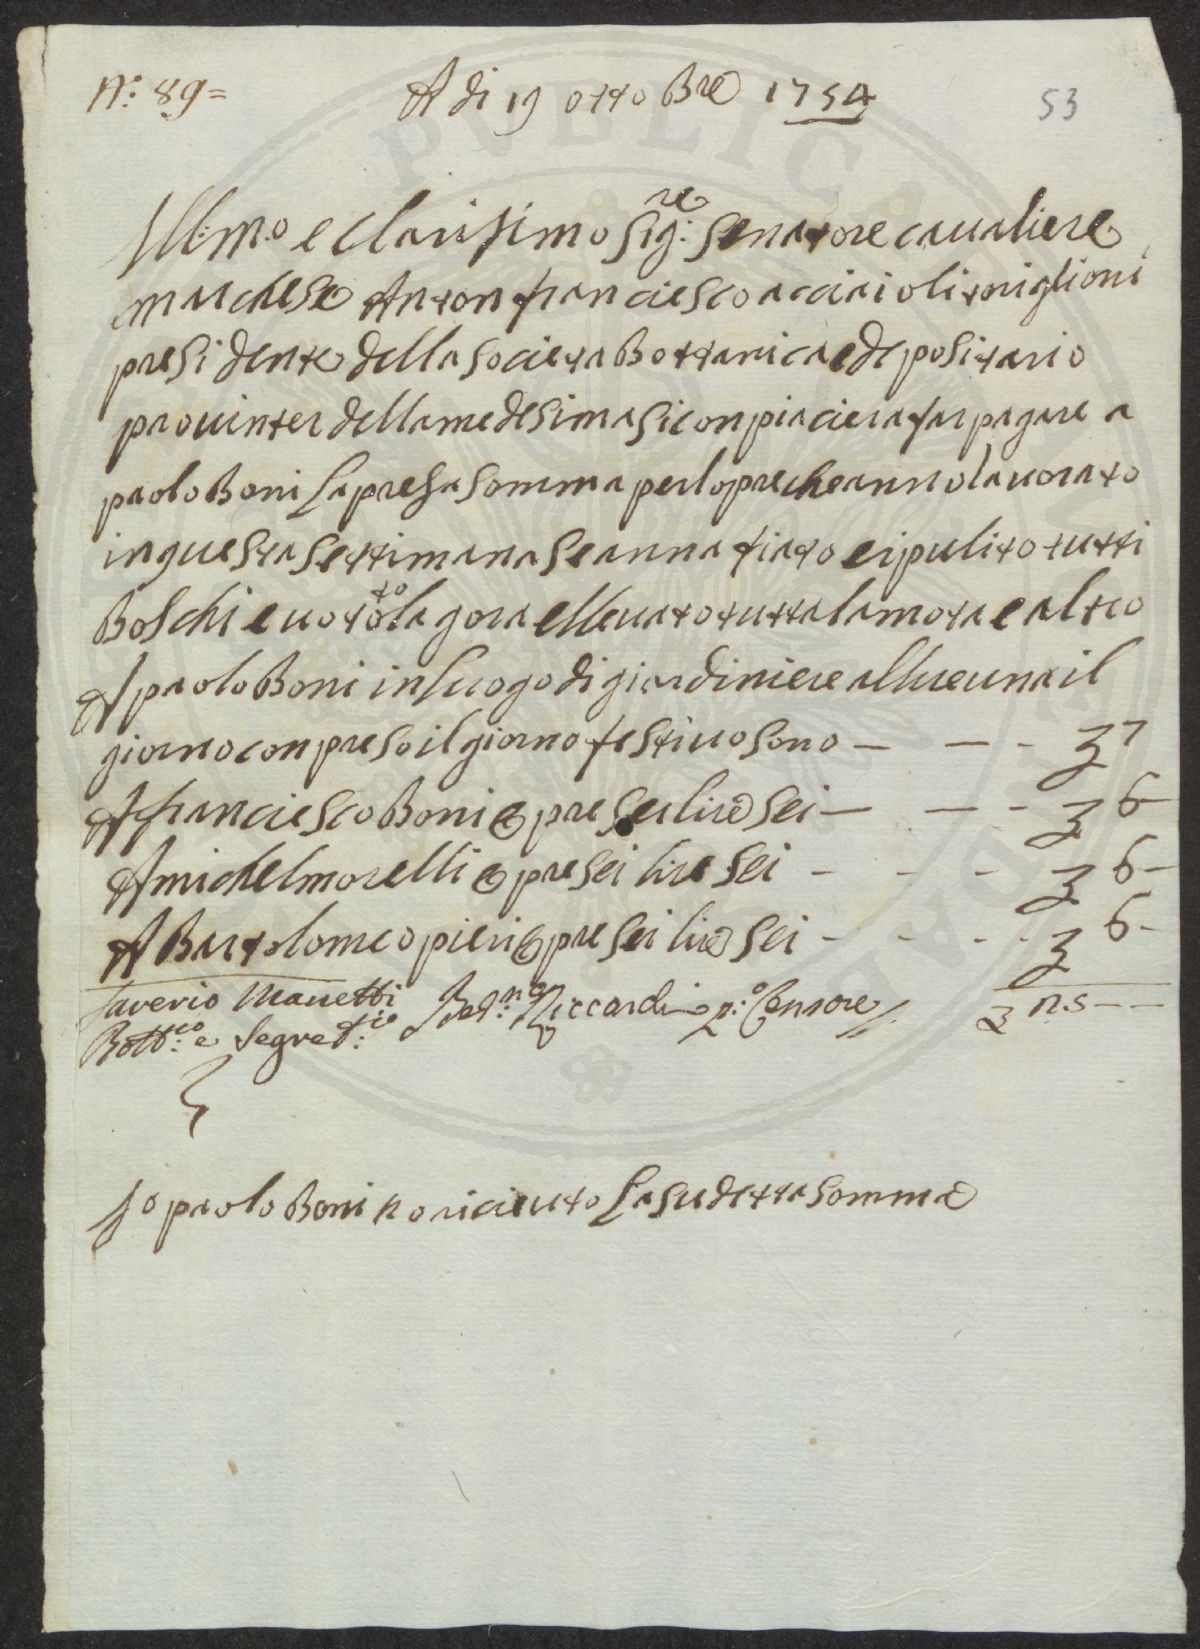 N.º 89=
A di 19 ottobre 1754
53
Ill:m:o e Clarisimo Sig:re Senatore cavaliere
marchese Anton franciesco acciaioli toriglioni
presidente della Societa Bottanica e depositario
provinter della medesima si conpiaciera far pagare a
paolo Boni La presa somma per lopre che anno lavorato
in questa settimana se anna fiato e ipulito tutti
Boschi e votto la gora ellevato tutta la mota e altro
A paolo Boni in luogo di giardiniere allire una il
giorno conpreso il giorno festivo sono — — - 7
A franciesco Boni p opre sei lire sei — — - 6-
A michel morelli p opre sei lire sei - - - 6-
A Bartolomeo pieri p opre sei lire sei - - - 6-
Saverio Manetti
Bott:co e Segret:io
Bed:no Riccardi p:º Censore
25 — —
Io paolo Boni ho riciuto La sudetta somma
PVBLICA